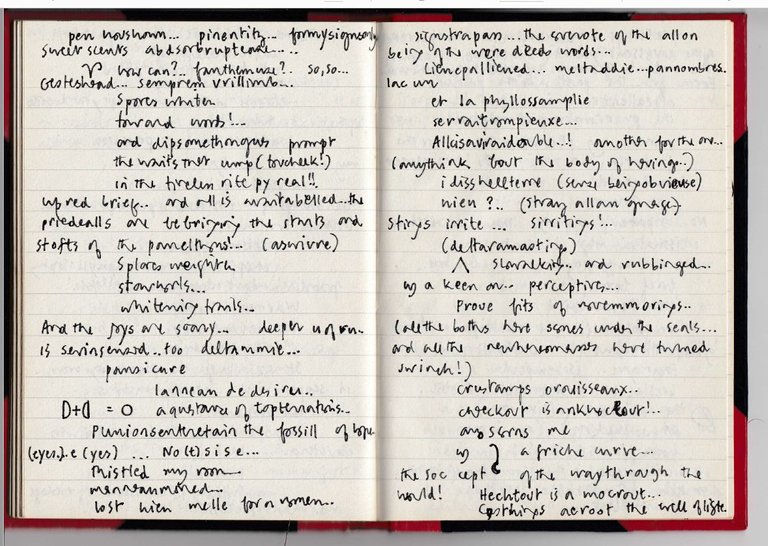 pen novshown... pinentity... formysignsong
sweet scents abdsorbrupteane....
how can?.. fanthemuse?. so, so...
Gesteshead... semprem vrillimb...
Spores whiten
toward words!...
and dipsomethongues prompt
the waits that ump (toucheek!)
in the tireless rite py real!!
up red brief.. and all is availabelled..the
priedealls are bebringing the stants and
stofts of the pannelthyns!... (aswivre)
Splores weighten
stowhorls...
whitening trails...
And the joys are soary... deeper
is sevinsensord..too deltammie...
pansicure
lannean de desires...
D+D = O a gustave of topternations...
the fossill of hope
(eyes.).e (yes) ... No(t) sise...
Thistled my room
menneanmoned...
lost hien melle for a women...
signstrapass... the sorenote of the allon
being of the were deeds words...
Lienepalliened... meltaddie...pannombres.
lac un
et la phyllossamplie
servaitrompieuxe...
Allcisaviraidouble..! another for the one...
(anythink bout the body of having..)
i disshellterre (sense beingobvieuse)
nien ?.. (stray allan gneage)
Stirys invite ... sirritinys!...
(deltaramastings)
Λ slowalkins.. and rubbinged..
a keen on.. perceptives...
Prove fits of novemmorings..
(all the boths have scenes under the seals...
and all the have turned
swinch!)
crustamps orouisseaux..
checkout is ankhockout!..
ans scrns me
a friche curve...
the soc cept of the waythrough the
would! Hechtout is a mocrout...
across the well of